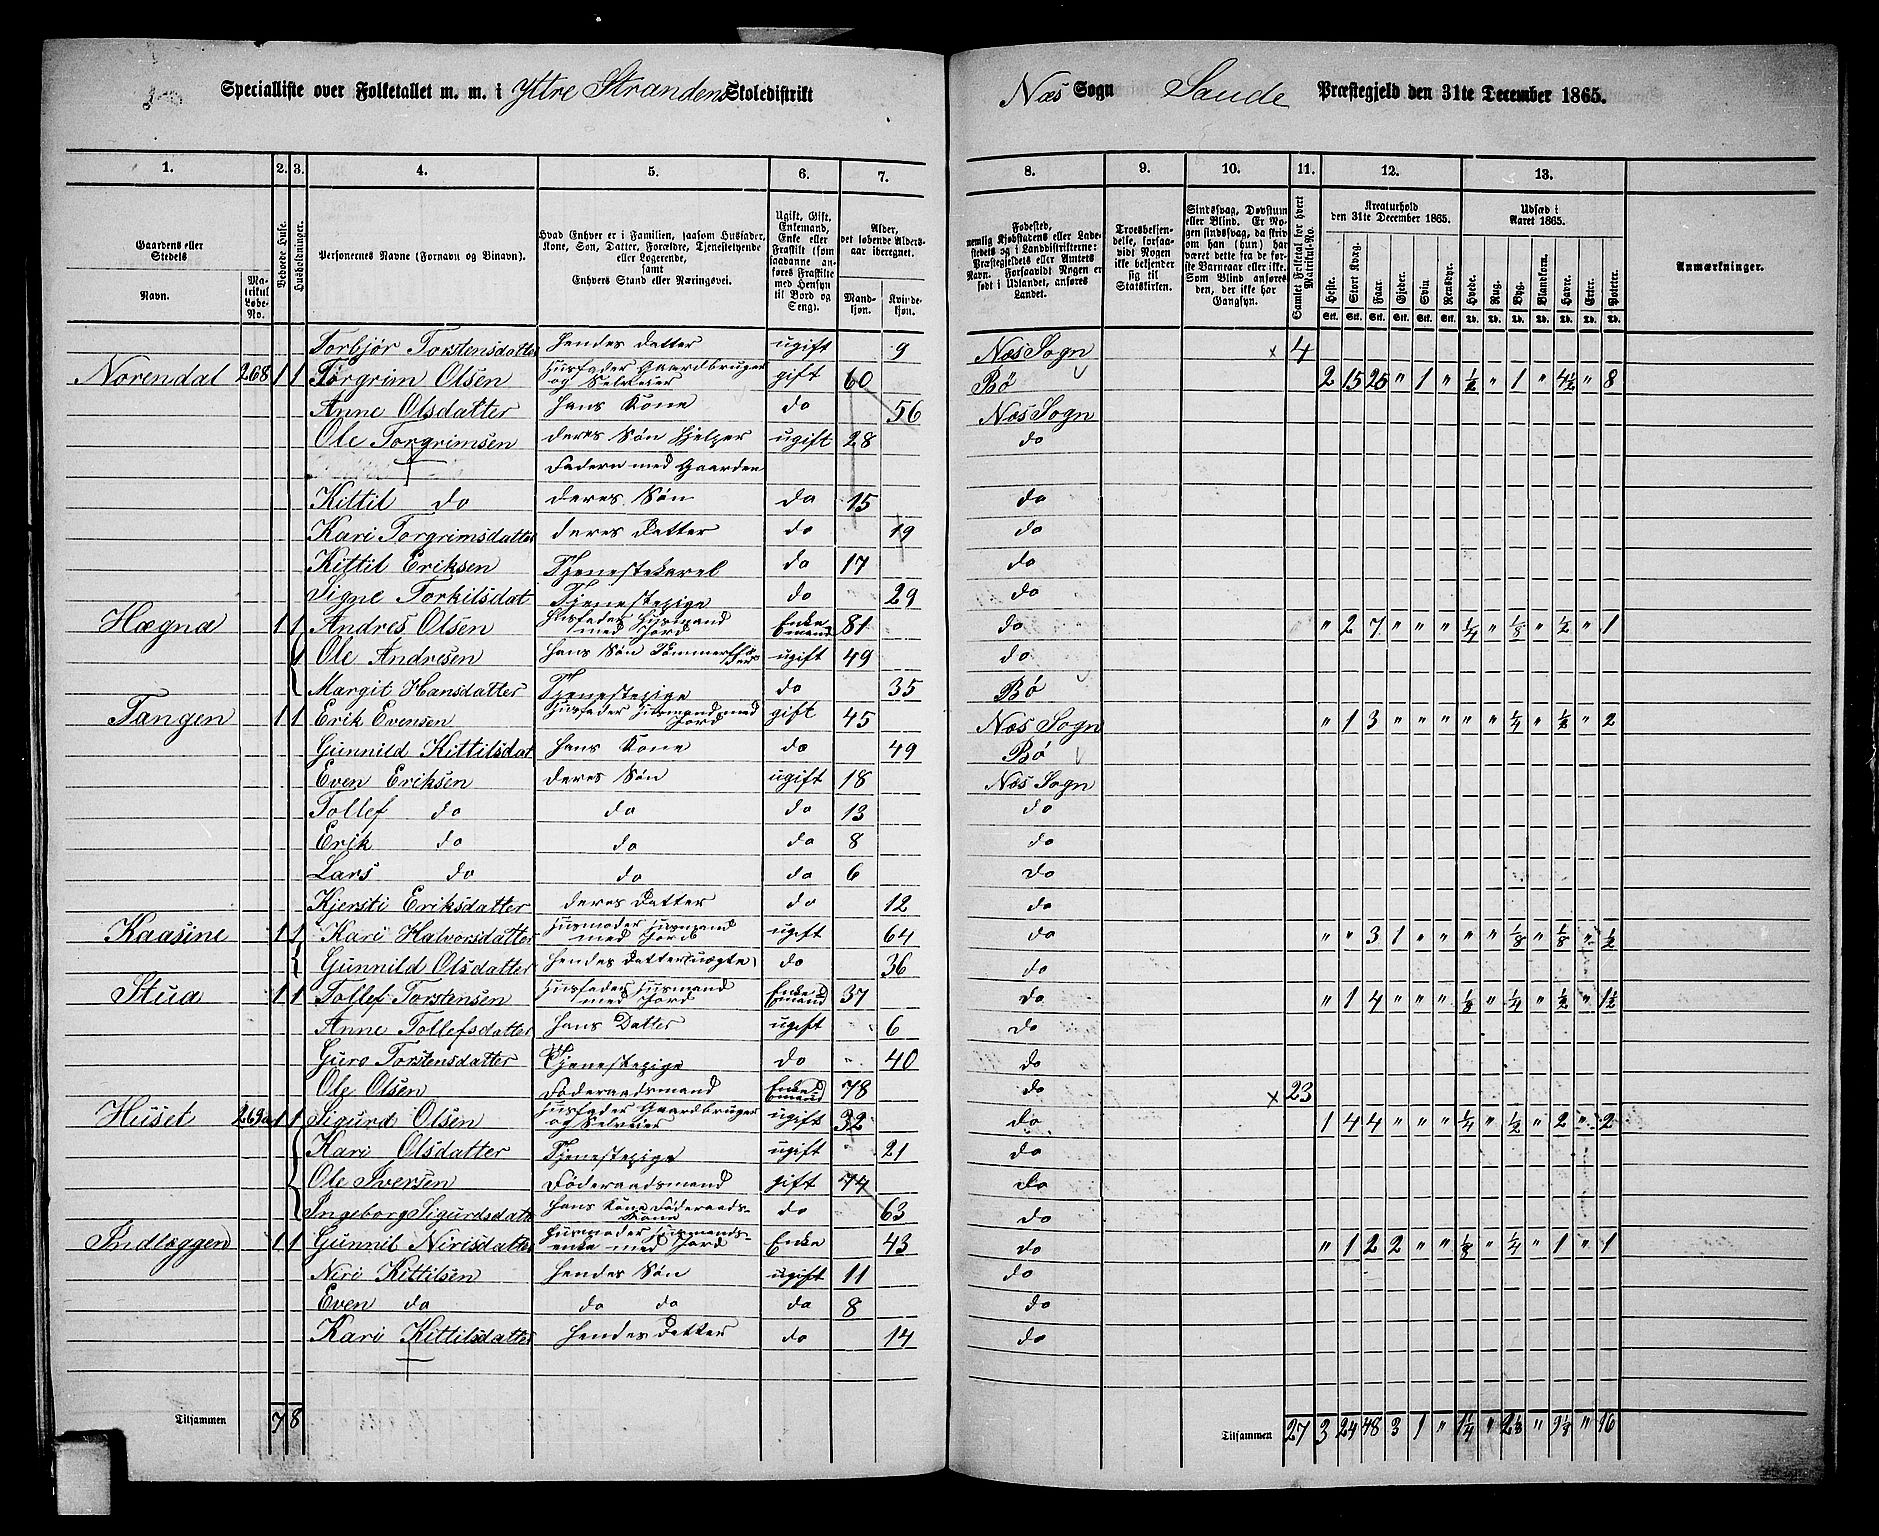 Specialliste over Folketallet m. m. i Ytre Strandens Skoledistrikt Næs Sogn Saude Præstegjeld den 31te December 1865.
1. 2. 3. 4. 5. 6. 7. 8. 9. 10. 11. 12. 13.
Gaardens eller Stedets Navn. Matrikul Løbe-No. Bebøede Huse. Husholdninger. Personernes Navne (Fornavn og Binavn).
Hvad Enhver er i Familien, saasom Husfader, Kone, Søn, Datter, Forældre, Tjenestetyende eller Logerende, samt Enhvers Stand eller Næringsvei.
Ugift, Gift, Enkemand, Enke eller Fraskilt (som saadanne anføres Fraskilte med Hensyn til Bord og Seng).
Alder, det løbende Aldersaar iberegnet. Mandkjøn. Kvindekjøn.
Fødested, nemlig Kjøbstadens eller Ladestedets og i Landdistrikterne: Præstegjeldets eller Amtets Navn. Forsaavidt Nogen er født i Udlandet, anføres Landet.
Troesbekjendelse, forsaavidt Nogen ikke bekjender sig til Statskirken.
Sindssvag, Døvstum eller Blind. Er Nogen sindssvag, da skriv om han (hun) har været dette fra de første Barneaar eller ikke. Som Blind anføres den, der ikke har Gangsyn.
Samlet Folketal for hvert Matrikul-No.
Kreaturhold den 31te December 1865. Heste. Stort Kvæg. Faar. Gjeder. Svin. Rensdyr.
Udsæd i Aaret 1865. Hvede. Rug. Byg. Blandkorn. Havre. Erter. Poteter.
Anmærkninger.
Torbjør Torstensdatter Hendes Datter ugift 9 Næs Sogn × 4
Norendal 268 1 1 Torgrim Olsen Husfader Gaardbruger og Selveier gift 60 Bø 2 15 25 " 1 " 1/2 " 1 " 4 1/2 " 8
Anne Olsdatter Hans Kone do 56 Næs Sogn
Ole Torgrimsen deres Søn hjelper ugift 28 do
Fadern med Gaarden
Kittil do deres Søn do 15 do
Kari Torgrimsdatter deres Datter do 19 do
Kittil Eriksen Tjenestekarl do 17 do
Signe Torkilsdat Tjenestepige do 29 do
Hægna 1 1 Andres Olsen Husfader Husmand med Jord Enkemand 81 do " 2 7 " " " 1/4 " 1/8 " 1/2 " 1
Ole Andresen Hans Søn ugift 49 do
Margit Hansdatter Tjenestepige do 35 Bø
Tangen 1 1 Erik Evensen Husfader Husmand med Jord gift 45 Næs Sogn " 1 3 " " " " " 1/4 " 1/2 " 2
Gunnild Kittilsdat Hans Kone do 49 Bø
Even Eriksen deres Søn ugift 18 Næs Sogn
Tollef do do do 13 do
Erik do do do 8 do
Lars do do do 6 do
Kjersti Eriksdatter deres Datter do 12 do
Kaasine 1 1 Kari Halvorsdatter Husmoder Husmand med Jord ugift 64 do " " 3 1 " " " " 1/8 " 1/8 " 1/2
Gunnild Olsdatter Hendes Datter (uægte) do 36 do
Stua 1 1 Tollef Torstensen Husfader Husmand med Jord Enkemand 37 do " 1 4 " " " 1/8 " 1/4 " 1/2 " 1 1/2
Anne Tollefsdatter Hans Datter ugift 6 do
Guro Torstensdatter Tjenestepige do 40 do
Ole Olsen Føderaadsmand Enkemand 78 do × 23
Huset 269a 1 1 Sigurd Olsen Husfader Gaardbruger og Selveier ugift 32 do 1 4 4 " " " 1/4 " 1/2 " 2 " 2
Kari Olsdatter Tjenestepige ugift 21 do
Ole Iversen Føderaadsmand gift 74 do
Ingeborg Sigurdsdatr Hans Kone Føderaads-Kone do 63 do
Indlæggen 1 1 Gunnil Nirisdatter Husmoder Husmands-enke med Jord Enke 43 do " 1 2 2 " " 1/8 " 1/4 " 1 " 1
Niri Kittilsen Hendes Søn ugift 11 do
Even do do do do 8 do
Kari Kittilsdatter Hendes Datter do 14 do
Tilsammen 7 8 Tilsammen 27 3 24 48 3 1 " 1 1/4 " " " 16